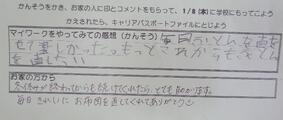 かんそうをかき、お家の人に印とコメントをもらって、1/8(木)に学校にもってこよう
かえされたら、キャリアパスポートファイルにとじよう
マイワークをやってみての感想(かんそう) 毎日ふとんを直
せて楽しかったもっとこれからもふとん
を直したい
お家の方から
冬休みが終わってからも続けてくれたら、とても助かります。
毎日きれいにお布団を直してくれてありがとう